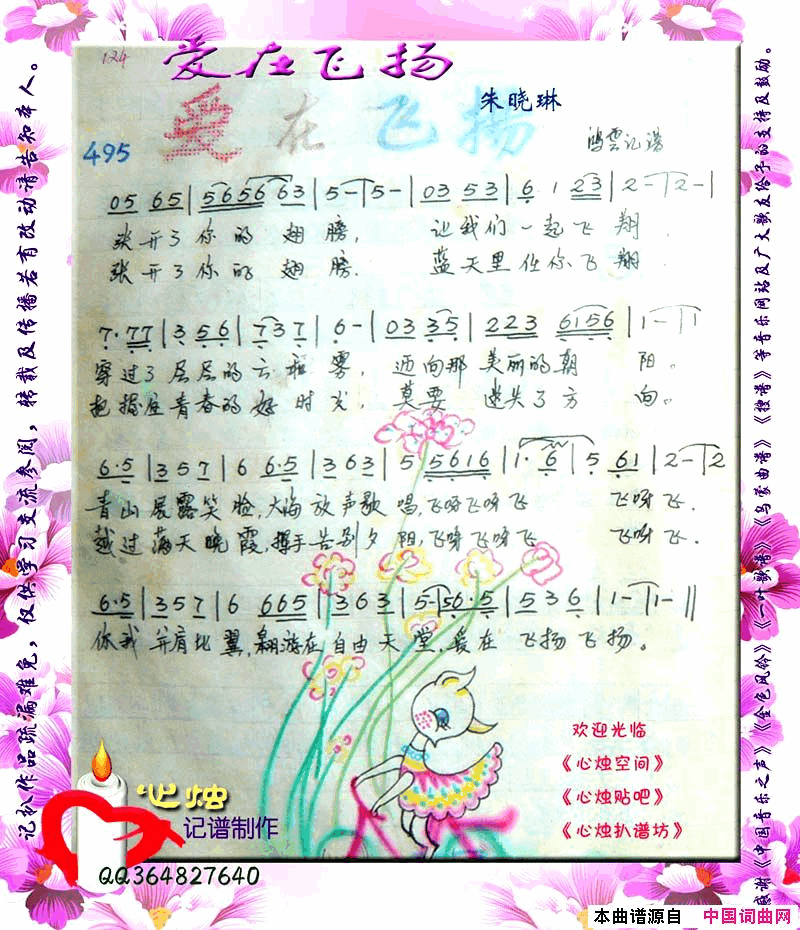 124
爱在飞扬
朱晓琳
爱在飞扬
495
鸿雲记谱
05 65 | 5656 63 | 5- | 5- | 03 53 | 6 1 23 | 2- | 2- |
张开了你的翅膀， 让我们一起飞翔．
张开了你的翅膀． 蓝天里任你飞翔．
7·77 | 3 56 | 737 | 6- | 03 35 | 223 6156 | 1- | 1
穿过了层层的云和雾，迈向那美丽的朝阳。
把握住青春的好时光，莫要迷失了方向。
6·5 | 357 | 6 6·5 | 363 | 5 5616 | 1·6 | 5 61 | 2- | 2
青山展露笑脸，大海放声歌唱，飞呀飞呀飞 飞呀飞．
越过满天晚霞，挥手告别夕阳，飞呀飞呀飞 飞呀飞．
6·5 | 357 | 6 665 | 363 | 5- | 56·5 | 536 | 1- | 1- ||
你我并肩比翼，翱游在自由天堂，爱在飞扬飞扬。
欢迎光临
《心烛空间》
《心烛贴吧》
《心烛扒谱坊》
心烛
记谱制作
QQ364827640
记扒作品疏漏难免，仅供学习交流参阅，转载及传播若有改动请告知本人。
感谢《中国音乐之声》《金色风铃》《一叶歌谱》《乌蒙曲谱》《搜谱》等音乐网站及广大歌友给予的支持及鼓励。
本曲谱源自 中国词曲网